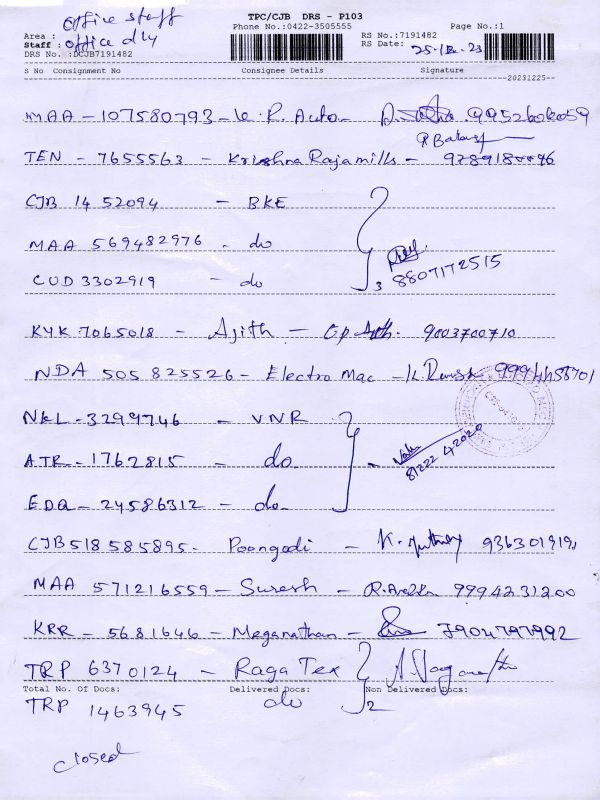 office staff
office dly
TPC/CJB DRS - P103
Phone No.:0422-3505555
Page No.:1
Area :
Staff :
DRS No.:DCJB7191482
RS No.:7191482
RS Date: 25-12-23
S No Consignment No Consignee Details Signature
20231225
MAA - 107580793 - K.R. Auto - 9952602059
TEN - 7655563 - Krishna Rajamills -
CJB 1452094 - BKE
MAA 569482976 - do
CUD 3302919 - do 3 8807172515
KYK 7065018 - Ajith - 9003700710
NDA 505 825526 - Electro Mac -
NKL - 3299746 - VNR
ATR - 1762815 - do - 81222 42020
EDQ - 24586312 - do
CJB 518 585895 - Poongodi - K.
MAA 571216559 - Suresh - 9994231200
KRR - 5681646 - Meganathan - 7904797992
TRP 6370124 - Raga Tex
Total No. Of Docs: Delivered Docs: Non Delivered Docs:
TRP 1463945 do 2
closed